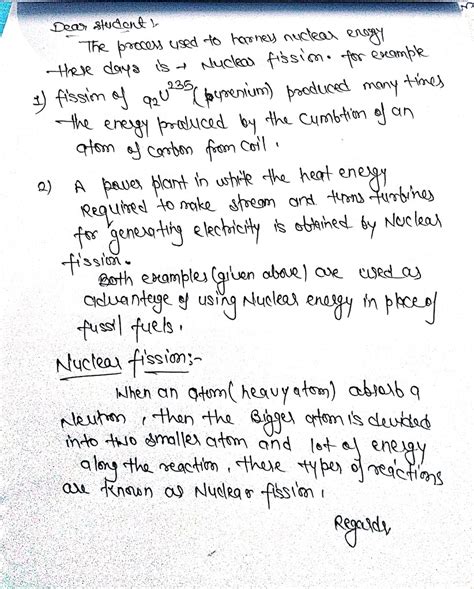 Dear student :-
The process used to harness nuclear enrgy
these days is → Nuclear fission. for example
1) fission of 92U235 (purenium) produced many times
the energy produced by the Cumbtion of an
atom of Carbon from Coil.
2) A power plant in white the heat energy
Required to make stream and turns turbines
for generating electricity is obtained by Nuclear
fission.
Both examples (given above) are used as
advantage of using Nuclear energy in place of
fussil fuels.
Nuclear fission:-
When an atom (heavy atom) absorb a
Neutron, then the Bigger atom is devided
into two smaller atom and lot of energy
along the reaction, these types of reactions
are known as Nuclear fission.
Regards